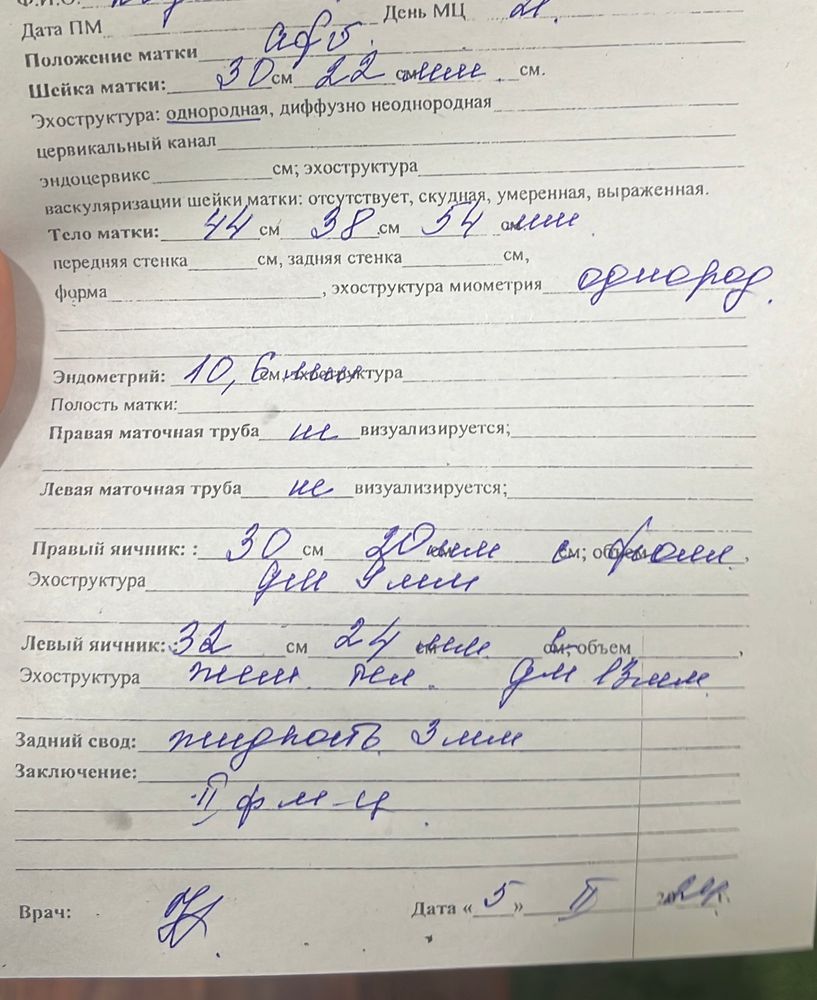 Ф.И.О.
Дата ПМ День МЦ 21.
Положение матки afv.
Шейка матки: 30 см 22 см мм. см.
Эхоструктура: однородная, диффузно неоднородная
цервикальный канал
эндоцервикс см; эхоструктура
васкуляризации шейки матки: отсутствует, скудная, умеренная, выраженная.
Тело матки: 44 см 38 см 54 см мм.
передняя стенка см, задняя стенка см,
форма , эхоструктура миометрия однород.
Эндометрий: 10,6 см, мм эхоструктура
Полость матки:
Правая маточная труба не визуализируется;
Левая маточная труба не визуализируется;
Правый яичник: : 30 см 20 см мм с см; объем фолл. ,
Эхоструктура дм 9 мм
Левый яичник: : 32 см 24 см мм в см; объем ,
Эхоструктура жел. тел. дм 13 мм.
Задний свод: жидкость 3 мм
Заключение:
II ф м-ц.
Врач: Дата « 5 » II 20 г.